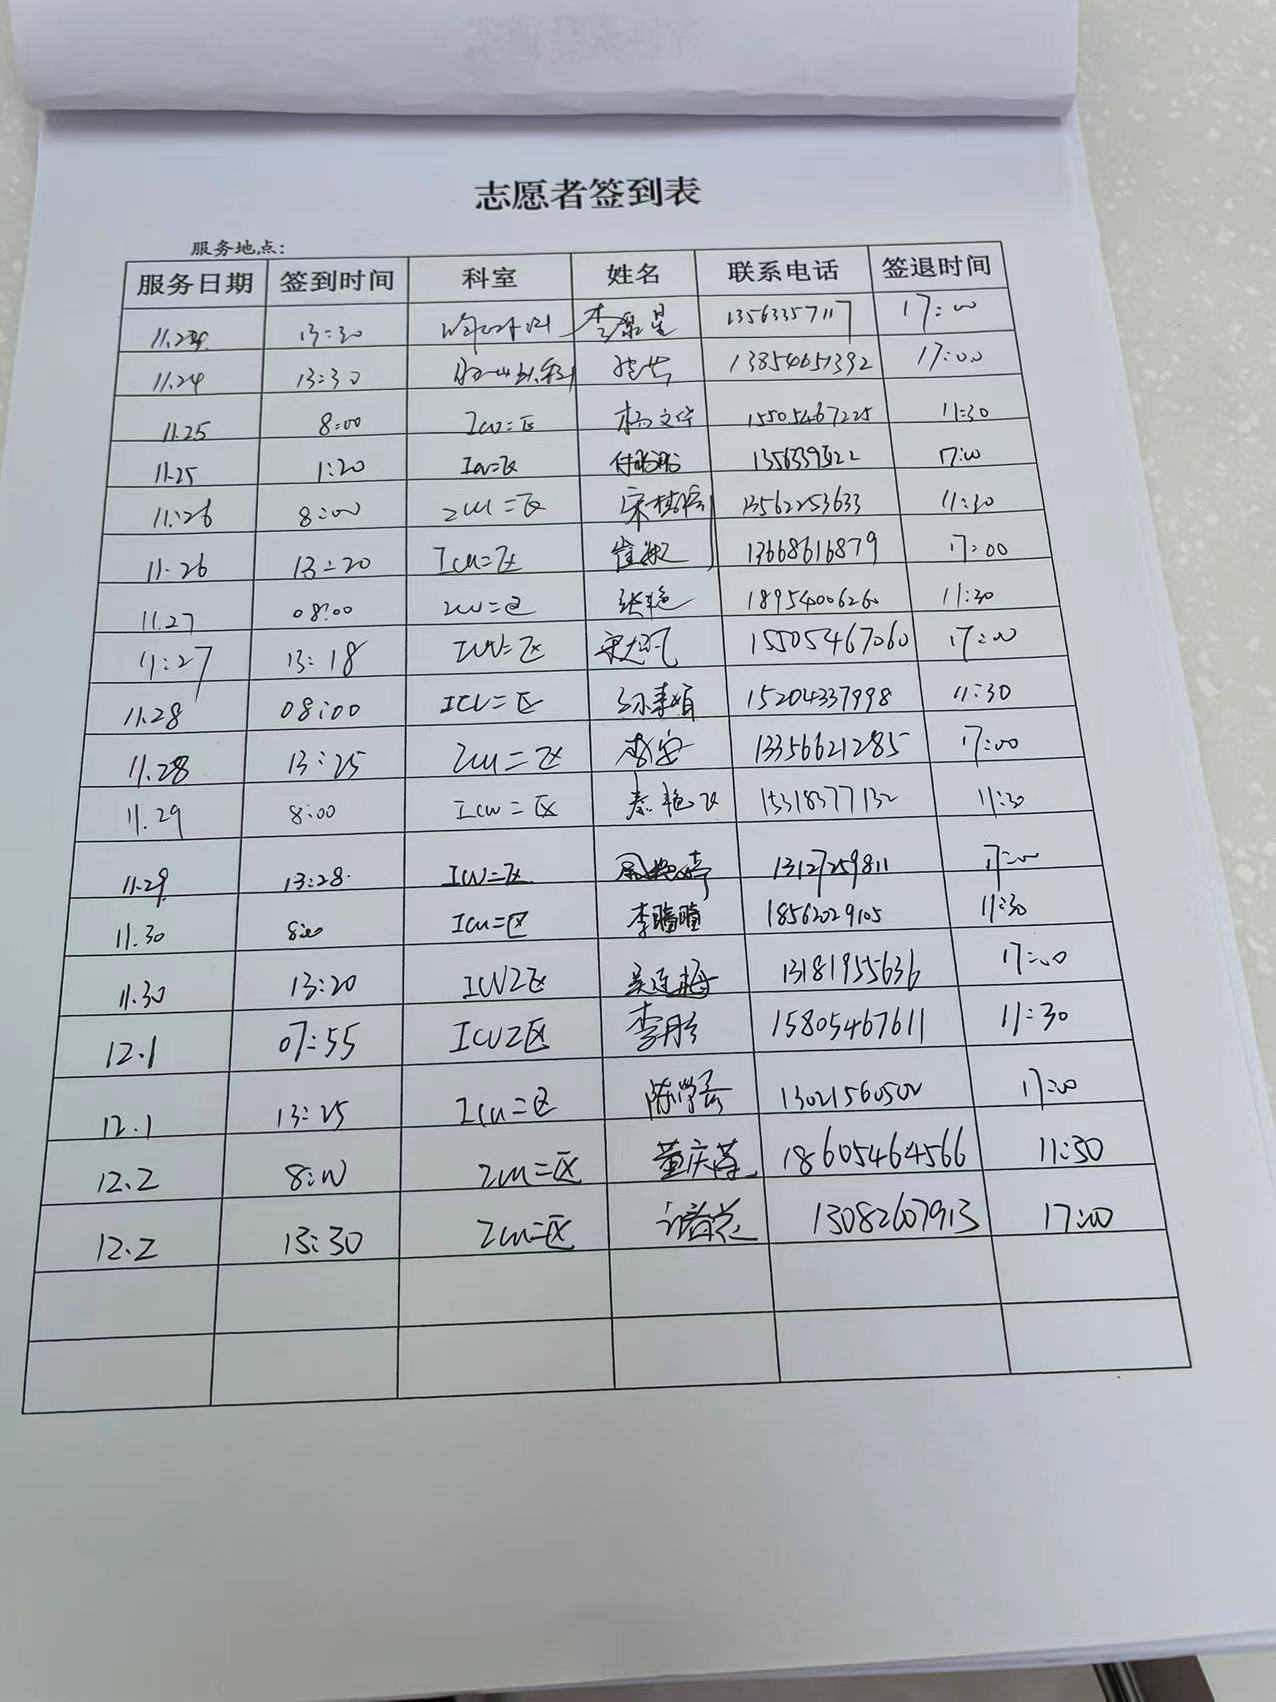 志愿者签到表
服务地点:
服务日期 签到时间 科室 姓名 联系电话 签退时间
13:30 13563357117 17:00
11.24 13:30 13854651392 17:00
11.25 8:00 ICU=区 杨文华 15505467225 11:30
11.25 1:20 ICU=区 17:00
11:26 8:00 ICU=区 13562253633 11:30
11.26 13:20 ICU=区 崔敏 13668616879 17:00
11.27 08:00 ICU=区 张艳 18954006260 11:30
11:27 13:18 ICU=区 15505467060 17:00
11.28 08:00 ICU=区 15204337998 11:30
11.28 13:25 ICU=区 李安 13356621285 17:00
11.29 8:00 ICU=区 15318377132 11:30
11.29 13:28 ICU=区 13127259811 17:00
11.30 8:00 ICU=区 李瞳瞳 18562029105 11:30
11.30 13:20 ICU2区 吴连梅 13181955636 17:00
12.1 07:55 ICU2区 李丹 15805467611 11:30
12.1 13:25 ICU=区 陈学芸 13021560502 17:00
12.2 8:00 ICU=区 董庆莲 18605464566 11:30
12.2 13:30 ICU=区 13082607913 17:00